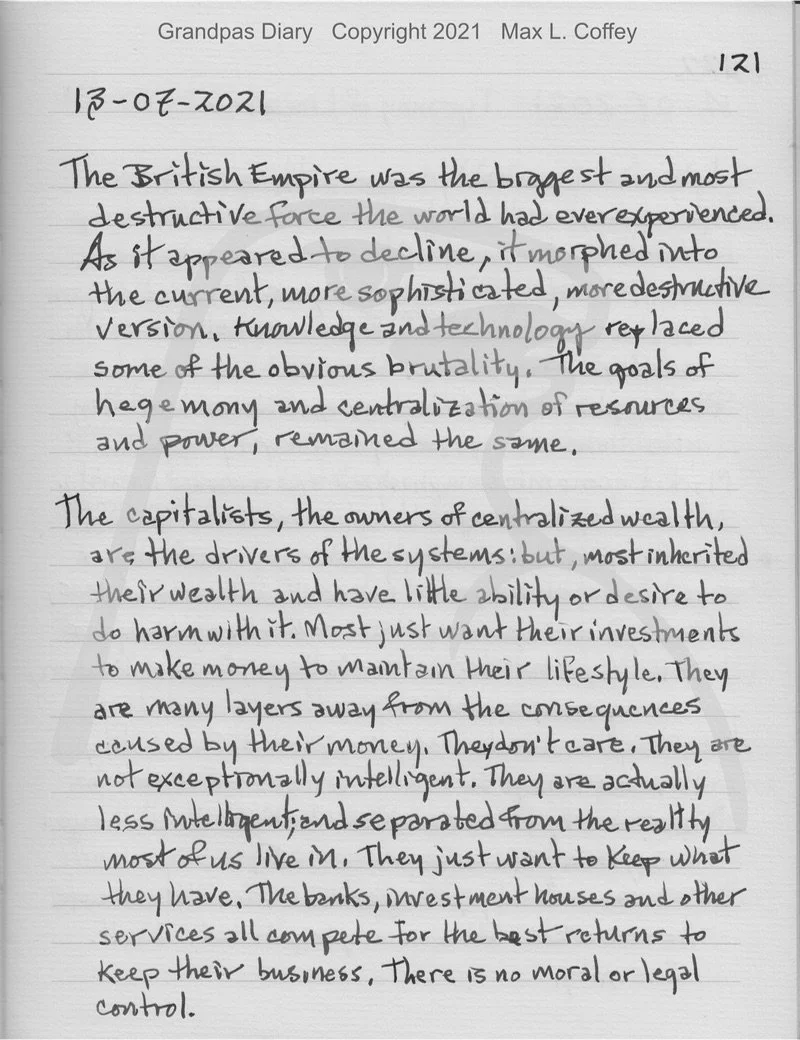 Grandpas Diary Copyright 2021 Max L. Coffey
121
13-07-2021
The British Empire was the biggest and most
destructive force the world had ever experienced.
As it appeared to decline, it morphed into
the current, more sophisticated, more destructive
version. Knowledge and technology replaced
some of the obvious brutality. The goals of
hegemony and centralization of resources
and power, remained the same.
The capitalists, the owners of centralized wealth,
are the drivers of the systems: but, most inherited
their wealth and have little ability or desire to
do harm with it. Most just want their investments
to make money to maintain their lifestyle. They
are many layers away from the consequences
caused by their money. They don't care. They are
not exceptionally intelligent. They are actually
less intelligent; and separated from the reality
most of us live in. They just want to keep what
they have. The banks, investment houses and other
services all compete for the best returns to
keep their business. There is no moral or legal
control.